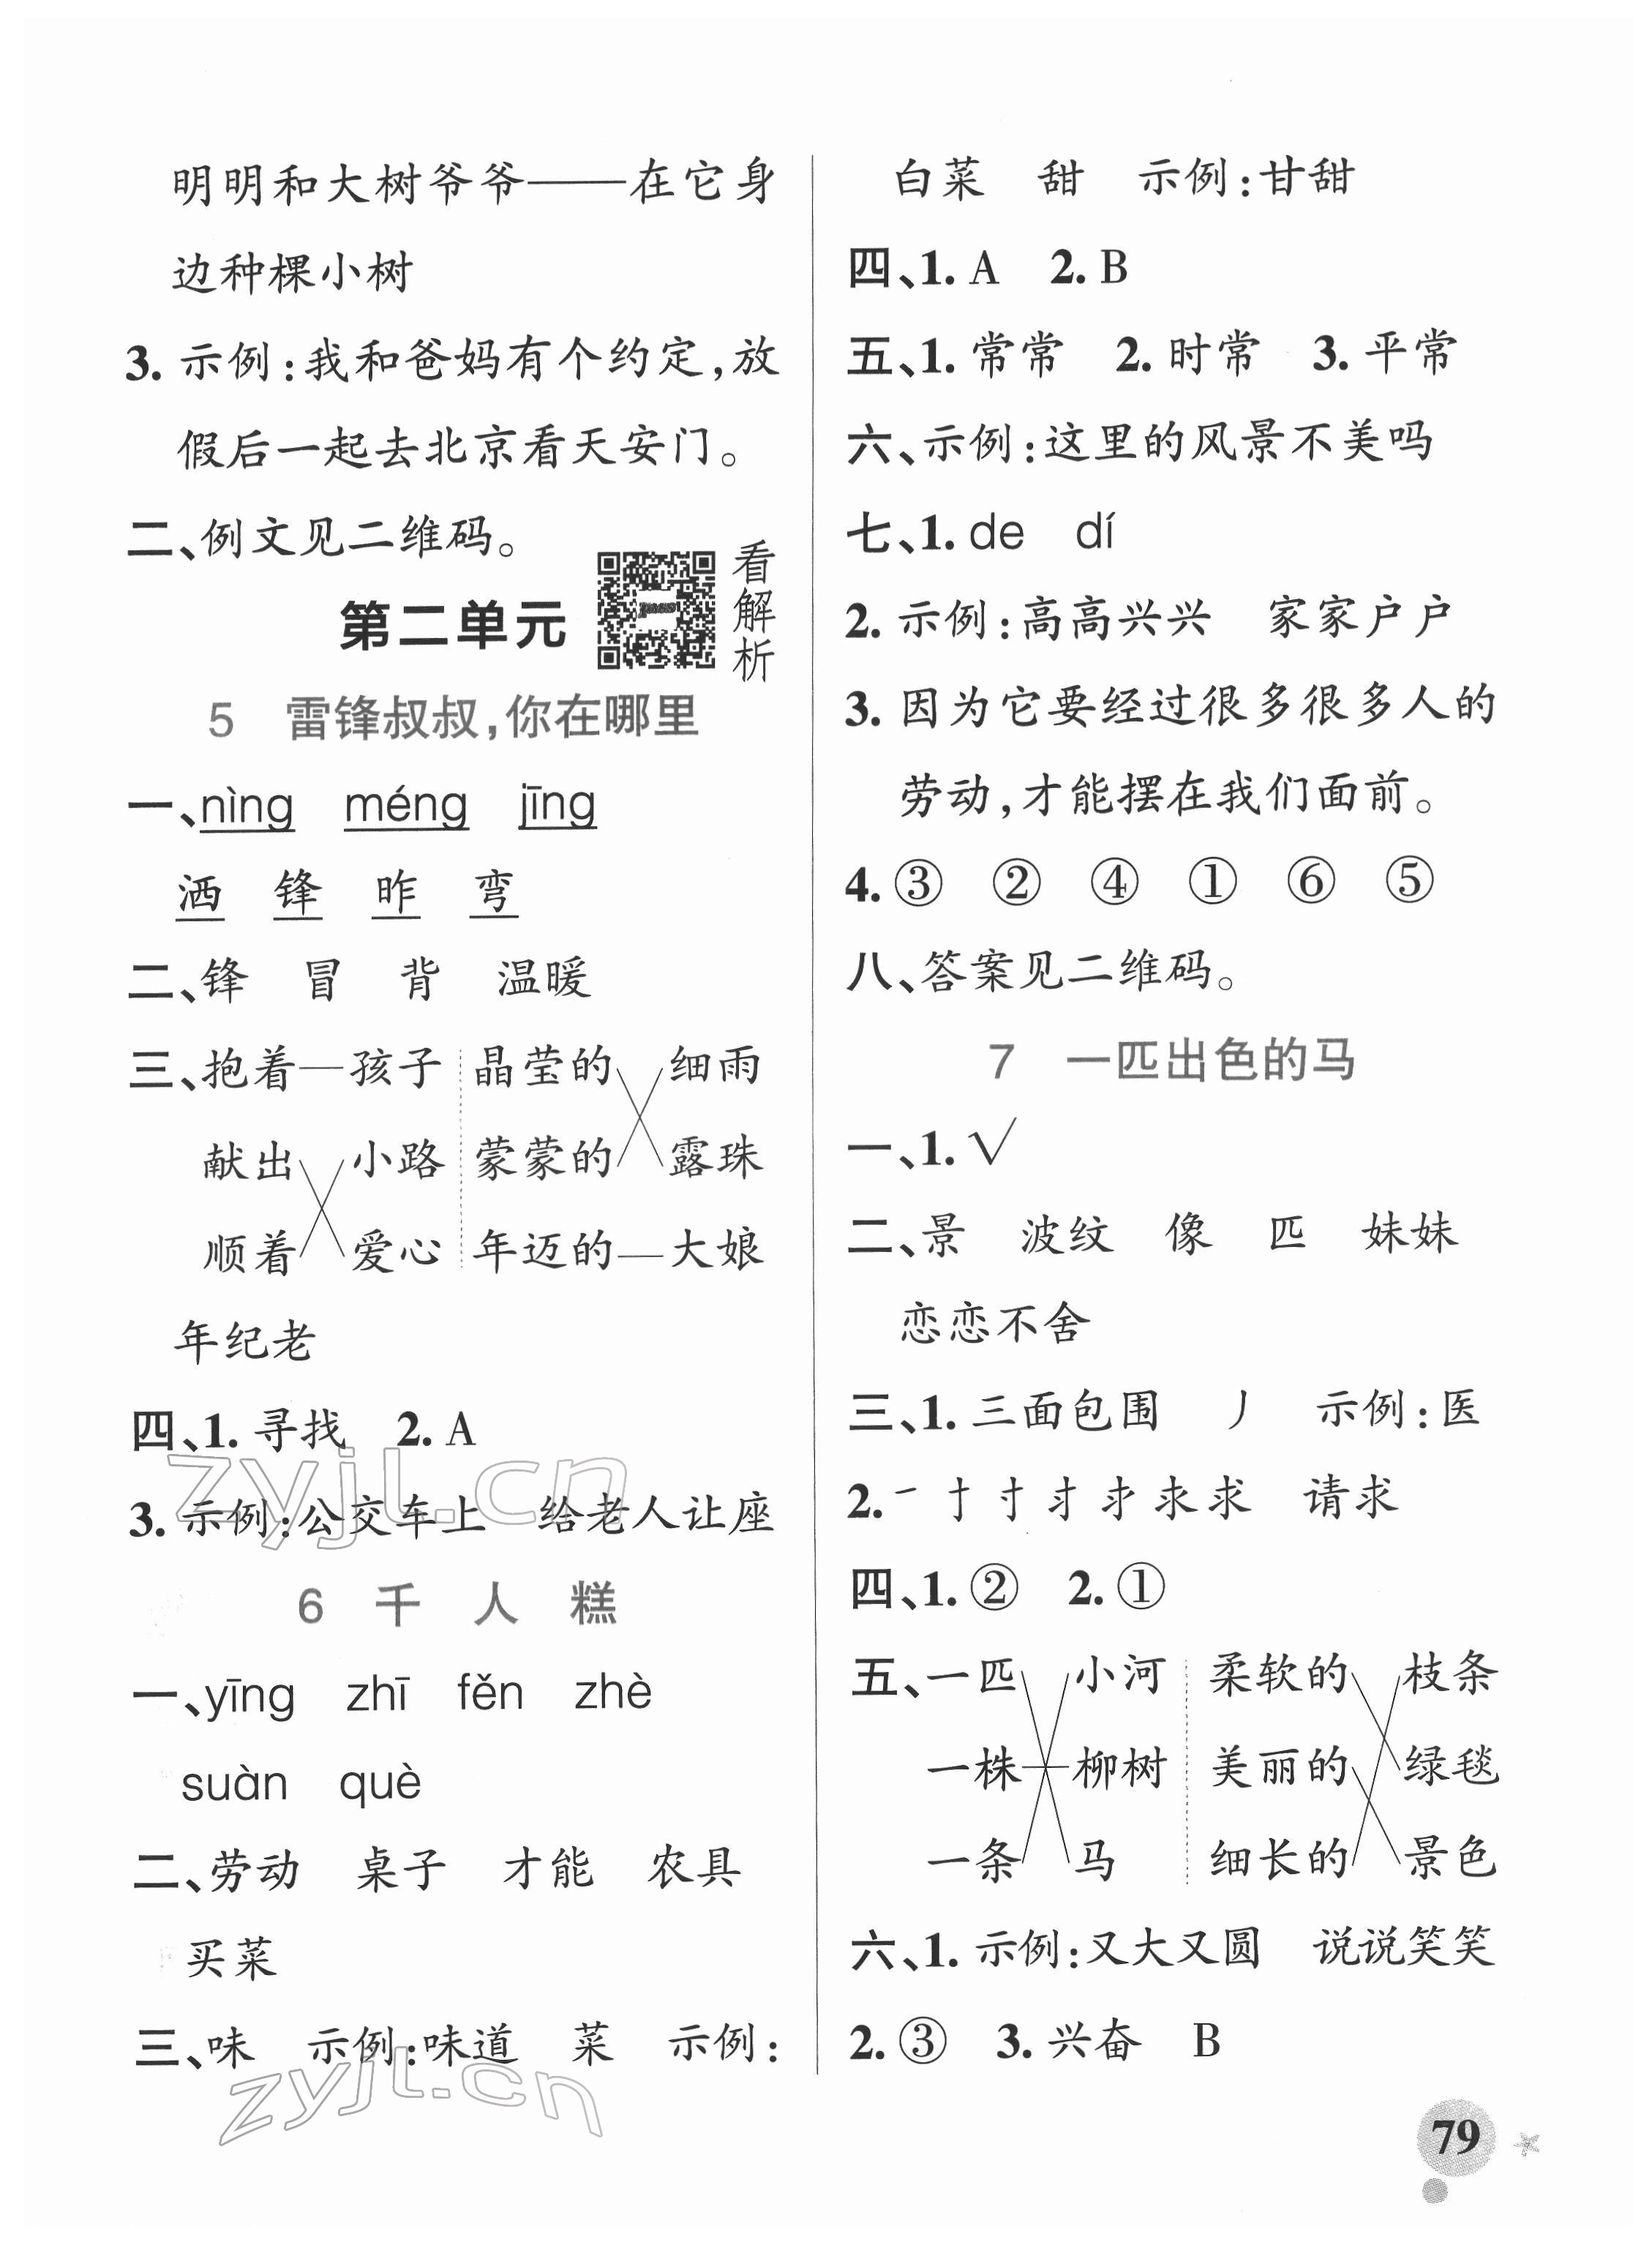 明明和大树爷爷——在它身
边种棵小树
3. 示例:我和爸妈有个约定,放
假后一起去北京看天安门。
二、例文见二维码。
看解析
第二单元
5 雷锋叔叔,你在哪里
一、nìng méng jīng
洒 锋 昨 弯
二、锋 冒 背 温暖
三、抱着 孩子 晶莹的 细雨
献出 小路 蒙蒙的 露珠
顺着 爱心 年迈的 大娘
年纪老
四、1. 寻找 2. A
3. 示例:公交车上 给老人让座
6 千人糕
一、yīng zhī fěn zhè
suàn què
二、劳动 桌子 才能 农具
买菜
三、味 示例:味道 菜 示例:
白菜 甜 示例:甘甜
四、1. A 2. B
五、1. 常常 2. 时常 3. 平常
六、示例:这里的风景不美吗
七、1. de dí
2. 示例:高高兴兴 家家户户
3. 因为它要经过很多很多人的
劳动,才能摆在我们面前。
4. ③ ② ④ ① ⑥ ⑤
八、答案见二维码。
7 一匹出色的马
一、1. √
二、景 波纹 像 匹 妹妹
恋恋不舍
三、1. 三面包围 丿 示例:医
2. 求 请求
四、1. ② 2. ①
五、一匹 小河 柔软的 枝条
一株 柳树 美丽的 绿毯
一条 马 细长的 景色
六、1. 示例:又大又圆 说说笑笑
2. ③ 3. 兴奋 B
79
zyjl.cn
zyjl.cn